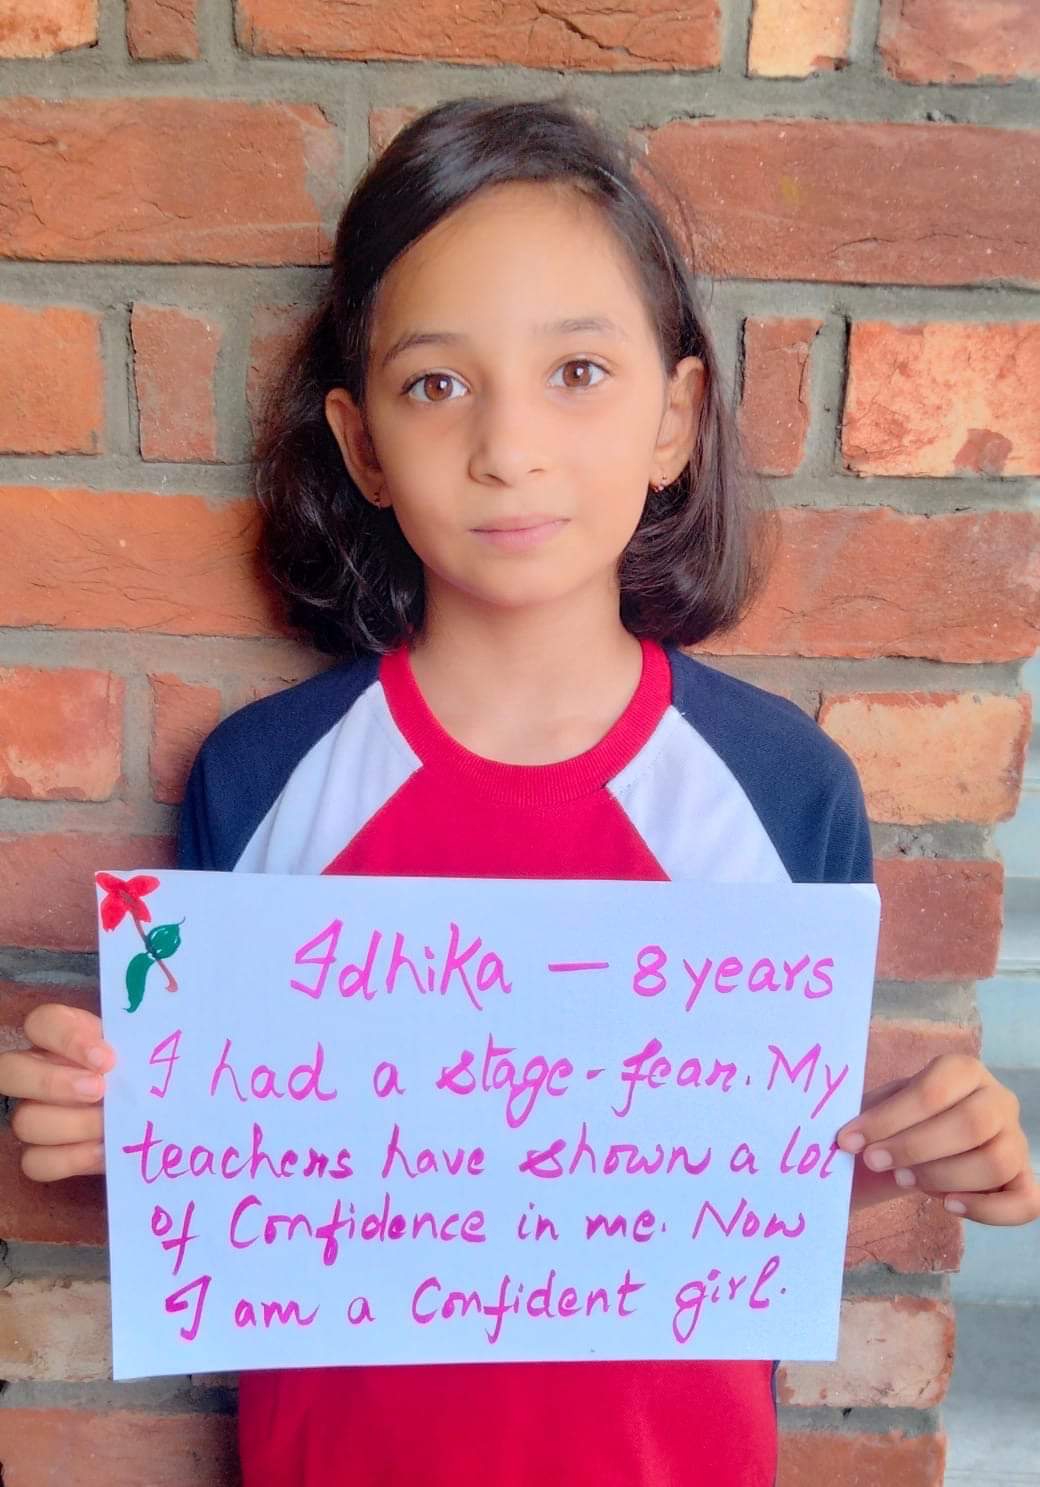 Idhika – 8 years
I had a stage-fear. My
teachers have shown a lot
of Confidence in me. Now
I am a Confident girl.